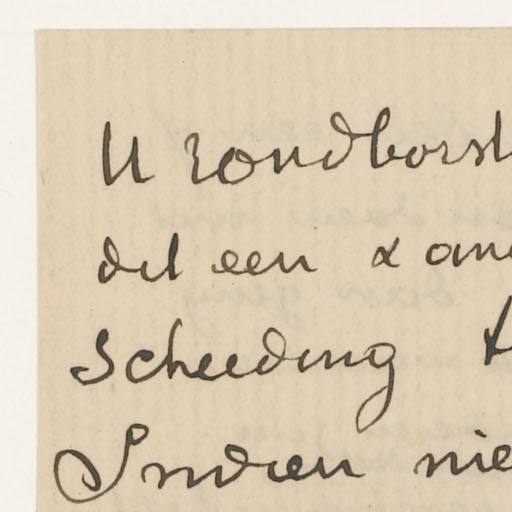 U rondborst
dit een & an
scheiding t
Indien nie